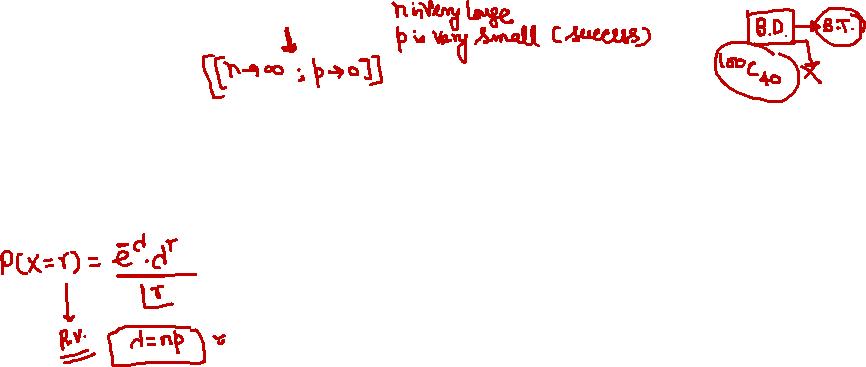 n is very large
p is very small (success)
[[n→∞ ; p→0]]
B.D. → B.T.
100C40 ×
P(X=r) = e^-d · d^r / |r
R.V.
d=np